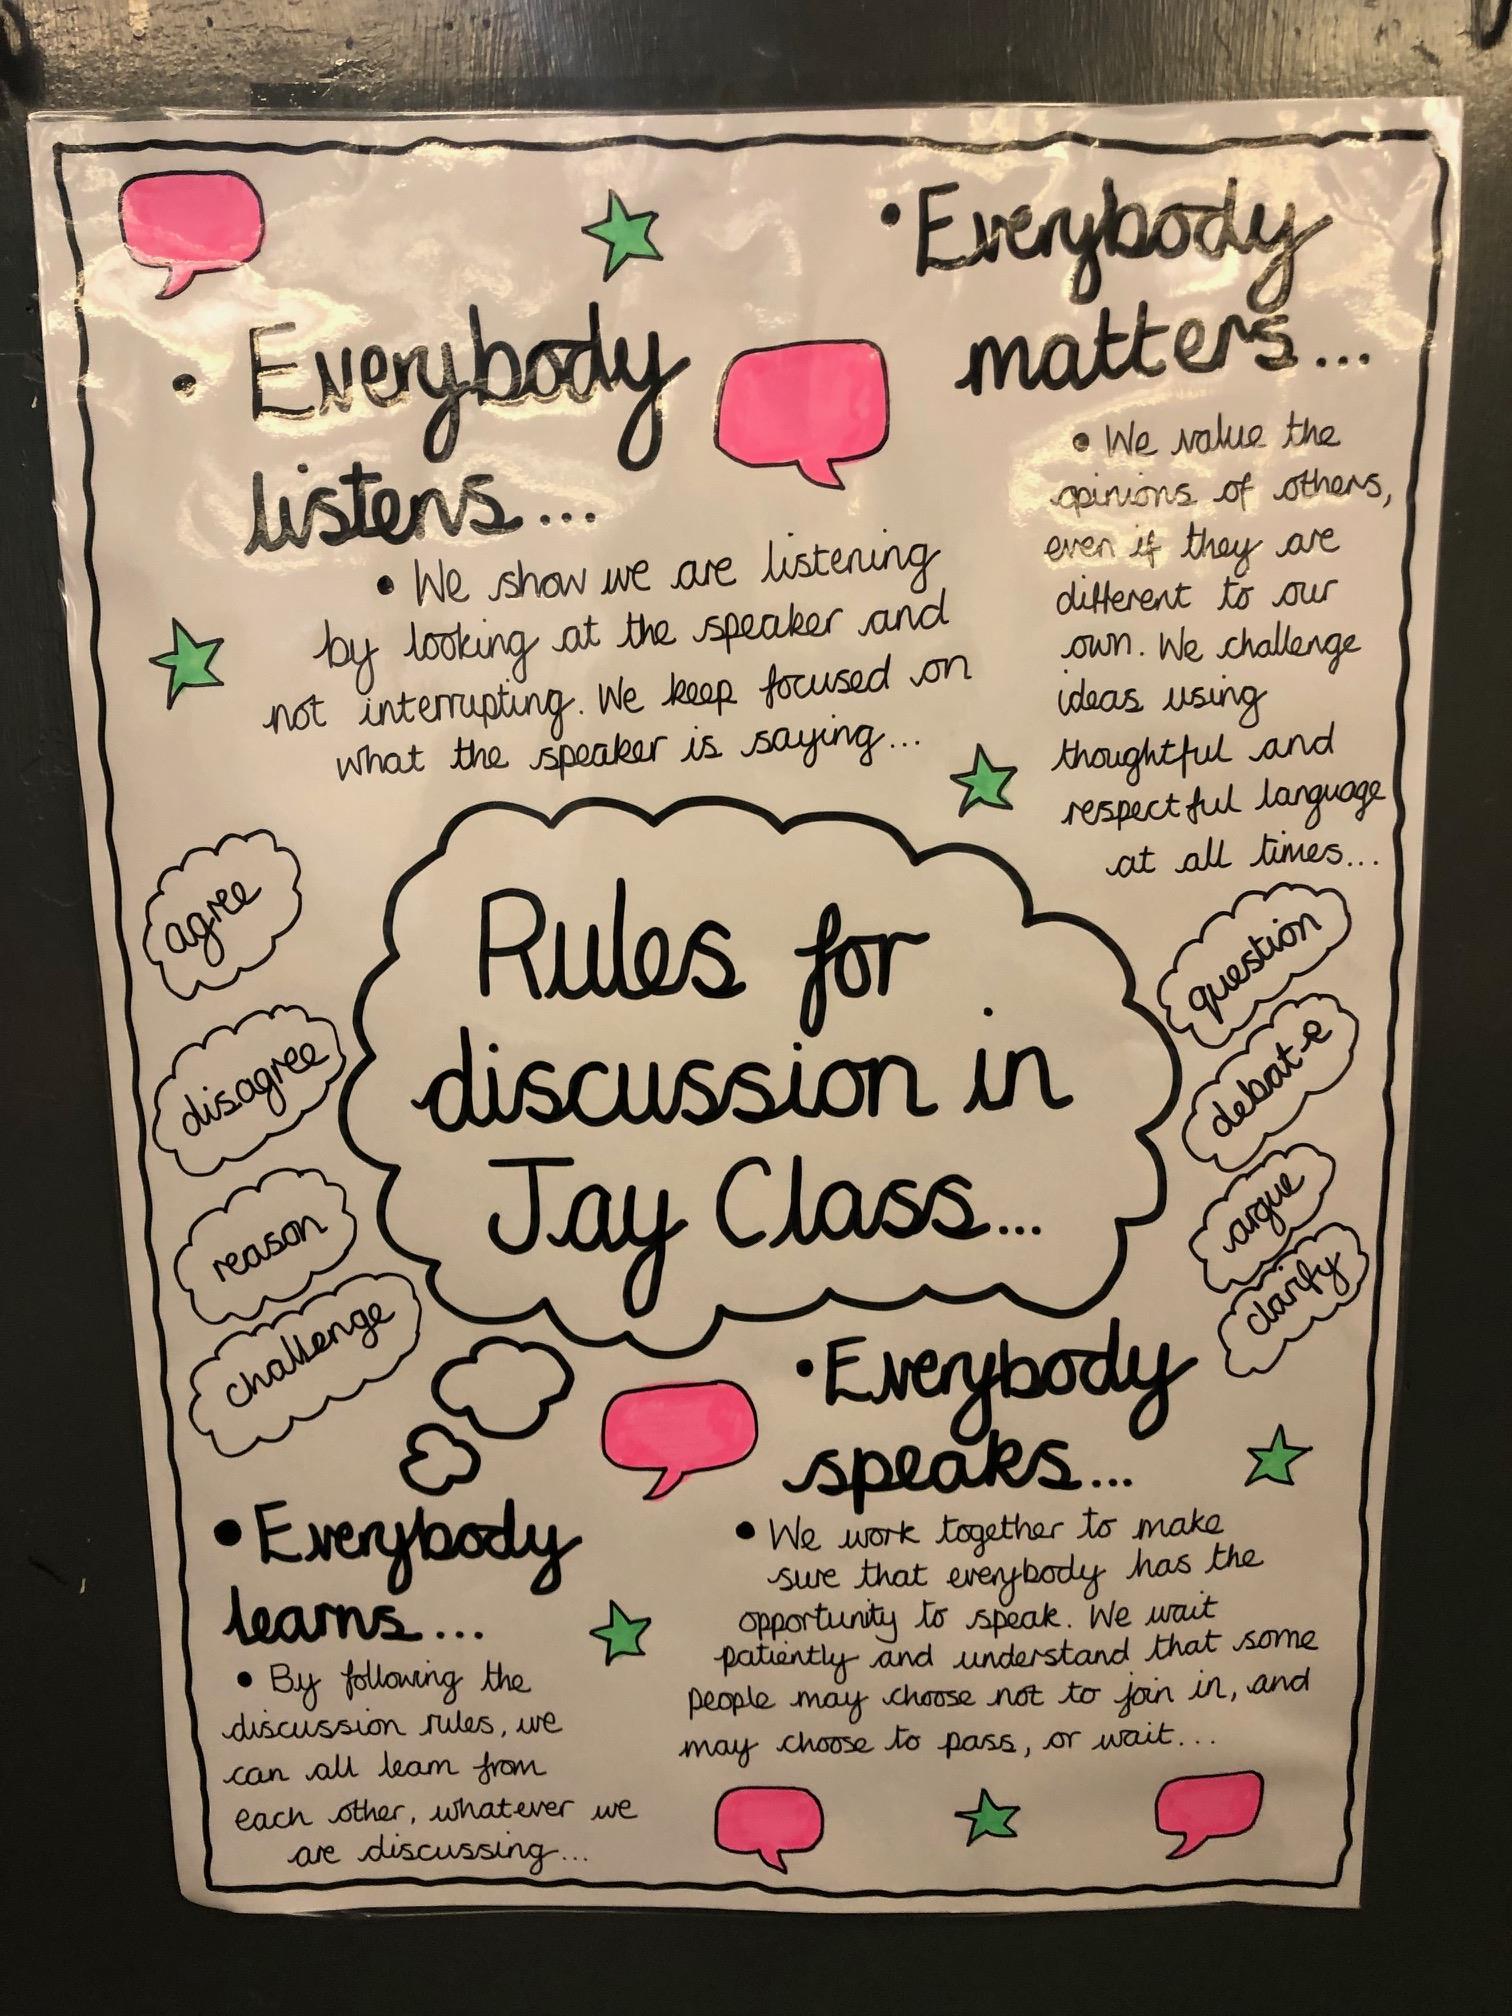 • Everybody
listens...
• We show we are listening
by looking at the speaker and
not interrupting. We keep focused on
what the speaker is saying...
• Everybody
matters...
• We value the
opinions of others,
even if they are
different to our
own. We challenge
ideas using
thoughtful and
respectful language
at all times...
agree
disagree
reason
challenge
Rules for
discussion in
Jay Class...
question
debate
argue
clarify
• Everybody
learns...
• By following the
discussion rules, we
can all learn from
each other, whatever we
are discussing...
• Everybody
speaks...
• We work together to make
sure that everybody has the
opportunity to speak. We wait
patiently and understand that some
people may choose not to join in, and
may choose to pass, or wait...